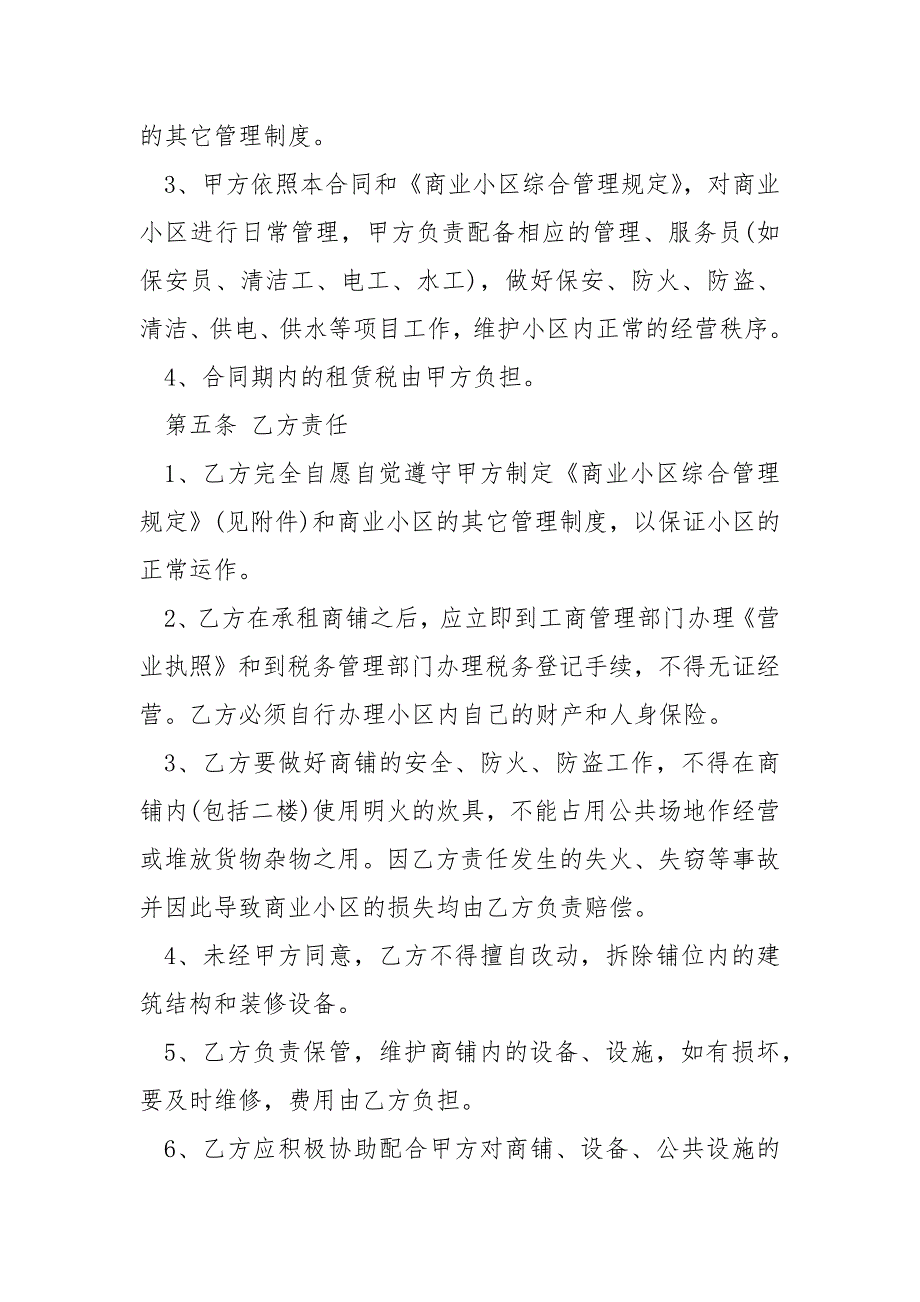 的其它管理制度。
3、甲方依照本合同和《商业小区综合管理规定》，对商业
小区进行日常管理，甲方负责配备相应的管理、服务员(如
保安员、清洁工、电工、水工)，做好保安、防火、防盗、
清洁、供电、供水等项目工作，维护小区内正常的经营秩序。
4、合同期内的租赁税由甲方负担。
第五条 乙方责任
1、乙方完全自愿自觉遵守甲方制定《商业小区综合管理
规定》(见附件)和商业小区的其它管理制度，以保证小区的
正常运作。
2、乙方在承租商铺之后，应立即到工商管理部门办理《营
业执照》和到税务管理部门办理税务登记手续，不得无证经
营。乙方必须自行办理小区内自己的财产和人身保险。
3、乙方要做好商铺的安全、防火、防盗工作，不得在商
铺内(包括二楼)使用明火的炊具，不能占用公共场地作经营
或堆放货物杂物之用。因乙方责任发生的失火、失窃等事故
并因此导致商业小区的损失均由乙方负责赔偿。
4、未经甲方同意，乙方不得擅自改动，拆除铺位内的建
筑结构和装修设备。
5、乙方负责保管，维护商铺内的设备、设施，如有损坏，
要及时维修，费用由乙方负担。
6、乙方应积极协助配合甲方对商铺、设备、公共设施的